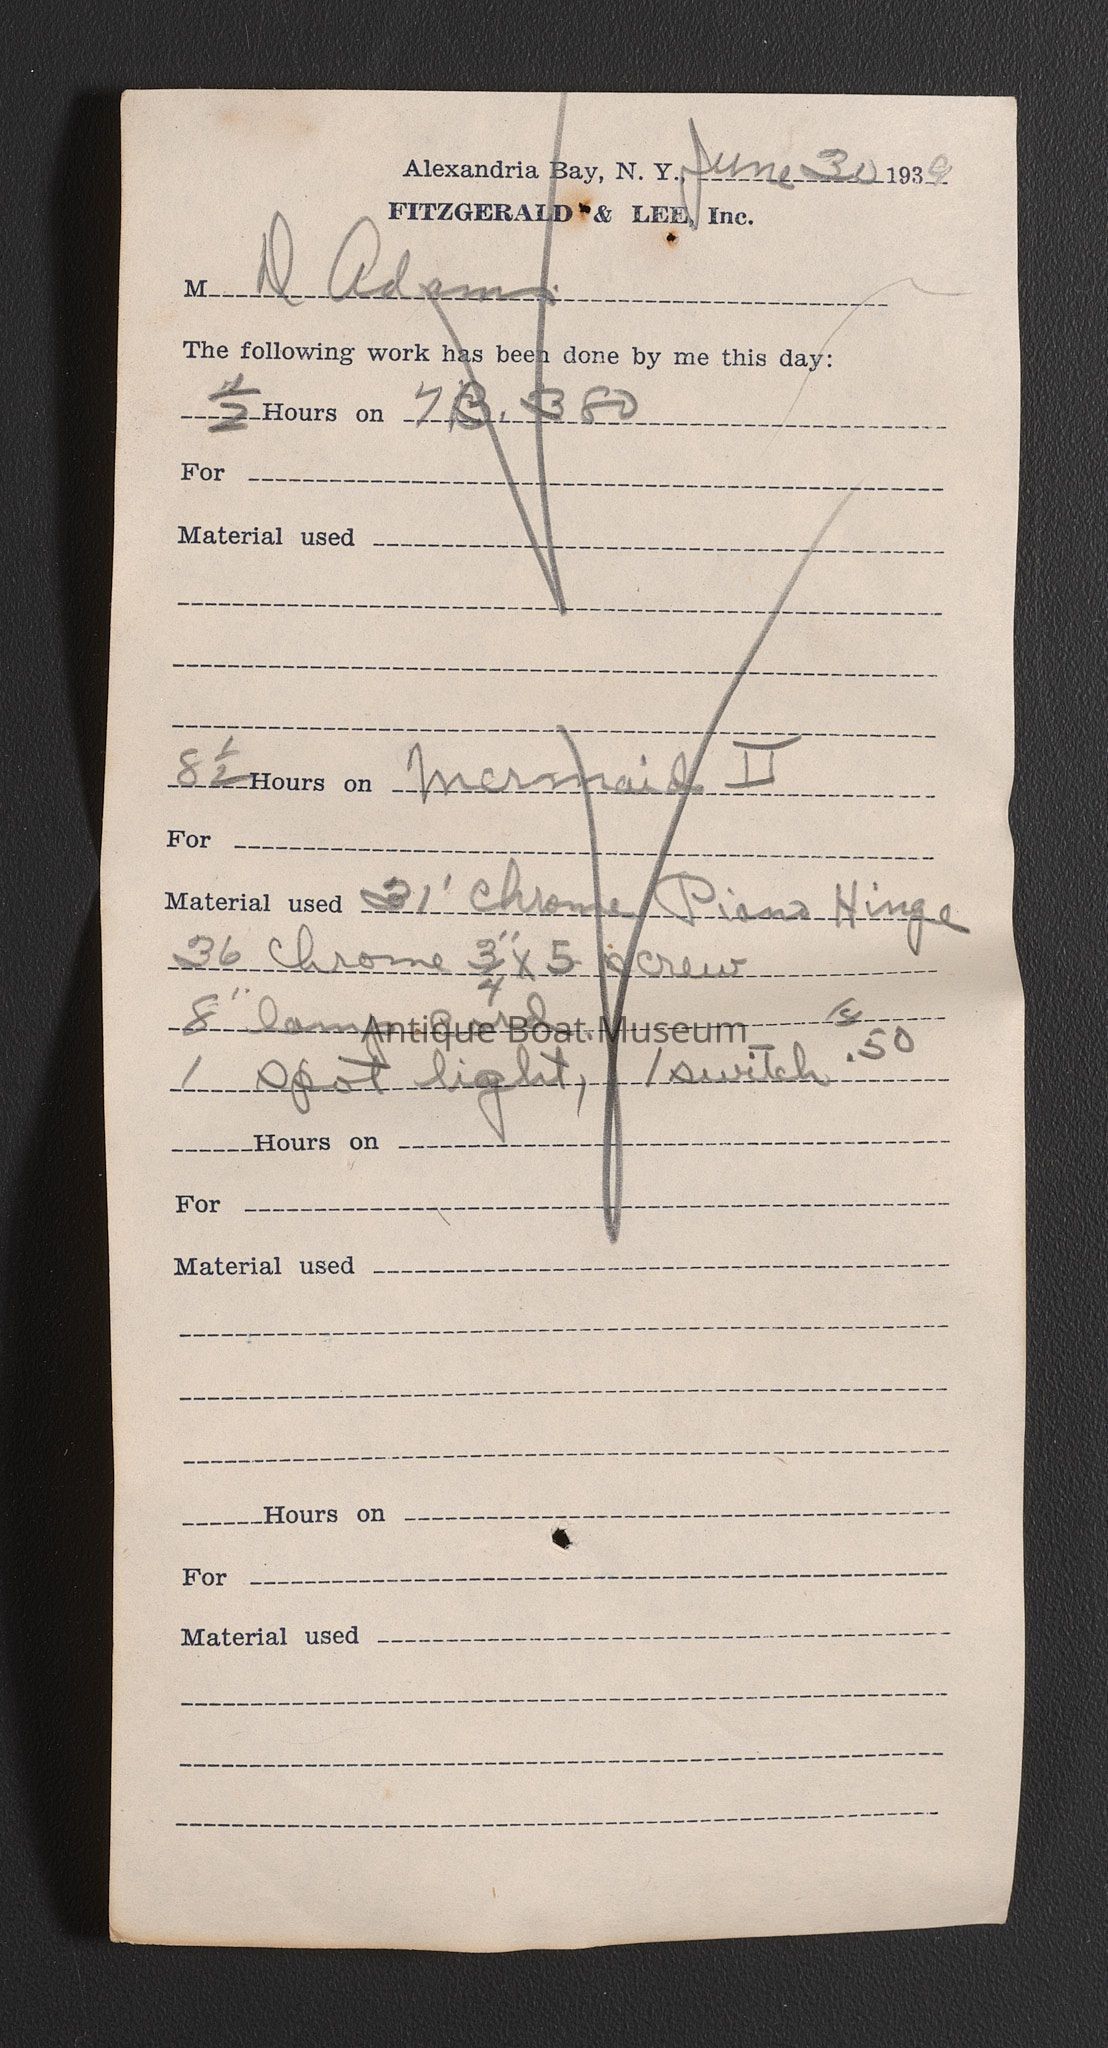 Alexandria Bay, N. Y., June 30 1939
FITZGERALD & LEE, Inc.
M D Adams
The following work has been done by me this day:
1/2 Hours on 7B. 380
For
Material used
8 1/2 Hours on Mermaid II
For
Material used 31' Chrome Piano Hinge
36 Chrome 3/4" x 5 screw
8" lamp cord.
Antique Boat Museum
1 spot light, 1 switch .50
Hours on
For
Material used
Hours on
For
Material used